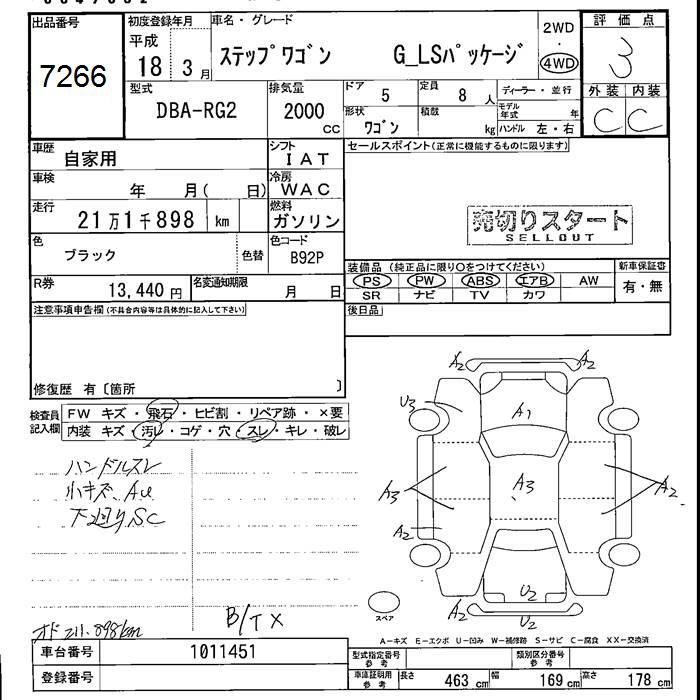 出品番号 初度登録年月 車名・グレード 2WD 評価点
7266 平成 18 3月 ステップワゴン G_LSパッケージ 4WD 3
型式 排気量 ドア 定員 ディーラー・並行 外装 内装
DBA-RG2 2000 CC 5 8人 モデル年式 年 C C
形状 ワゴン 積載 kg ハンドル 左・右
車歴 自家用 シフト IAT セールスポイント(正常に機能するものに限ります)
車検 年 月( 日) 冷房 WAC
走行 21万1千898 km 燃料 ガソリン
売切りスタート
SELLOUT
色 ブラック 色替 色コード B92P
装備品 (純正品に限り○をつけてください) 新車保証書
PS PW ABS エアB AW 有・無
SR ナビ TV カワ
R券 13,440円 名変通知期限 月 日
後日品
注意事項申告欄(不具合内容等は具体的に記入して下さい)
修復歴 有〔箇所 〕
検査員記入欄 FW キズ・飛石・ヒビ割・リペア跡・×要
内装 キズ・汚レ・コゲ・穴・スレ・キレ・破レ
ハンドルスレ
小キズ、AU
下廻りSC
B/TX
オド211.898km
A2 A2
U3 A1
A3 A3 A2
A2
U2
A2 U2
スペア
A-キズ E-エクボ U-凹み W-補修跡 S-サビ C-腐食 XX-交換済
車台番号 1011451 型式指定番号 参考 類別区分番号 参考
登録番号 車庫証明用 参考 長さ 463cm 幅 169cm 高さ 178cm